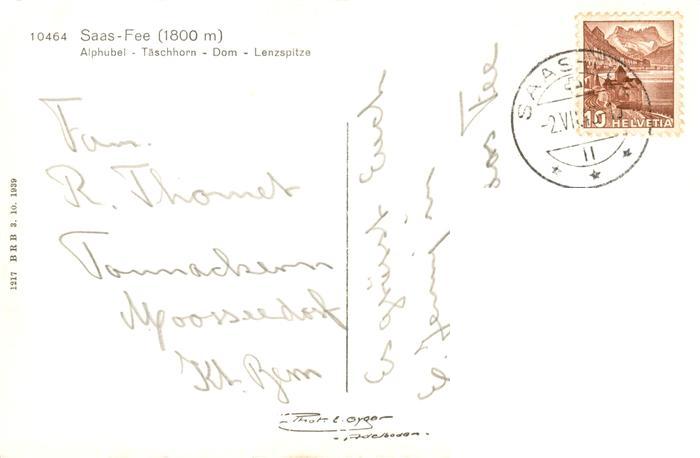 10464 Saas-Fee (1800 m)
Alphubel - Täschhorn - Dom - Lenzspitze
Fam.
R. Thomet
Tannackern
Moosseedorf
Kt. Bern
Es grüsst Euch
in
Saas Fee
SAAS
-2.VII
11
10 HELVETIA
1217 BRB 3. 10. 1939
Phot. E. Gyger
- Adelboden -